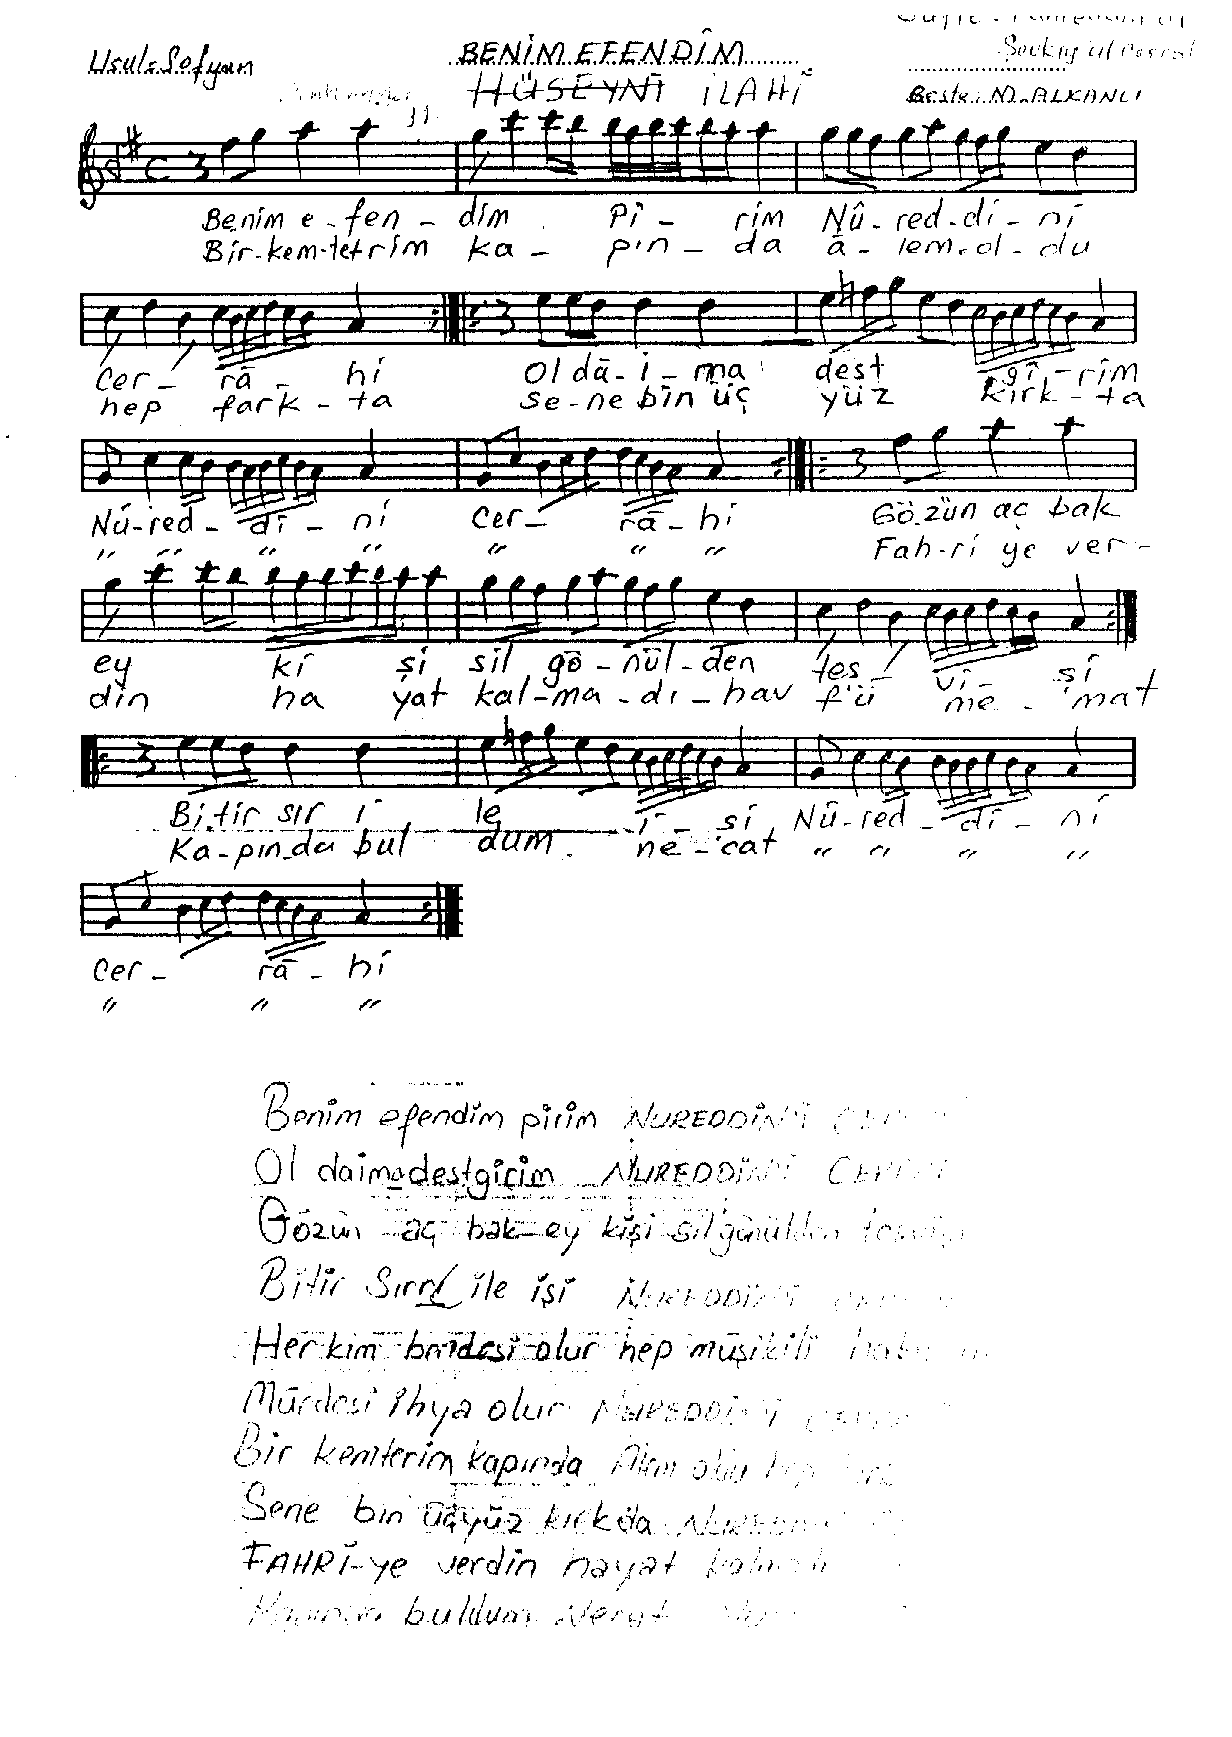 Usul: Sofyan
BENİM EFENDİM
HÜSEYNİ İLAHİ
Beste: M. ALKANLI
Benim e-fen-dim Pi-rim Nû-red-di-ni
Bir-kem-tetrim ka-pın-da â-lem-ol-du
Cer-râ-hi Ol dâ-i-ma dest gî-rim
hep fark-ta Se-ne bin üç yüz kırk-ta
Nû-red-dî-ni Cer-râ-hi Gö-zün aç bak
" " " " " " " Fah-ri ye ver-
ey ki şi sil gö-nül-den tes-vi-şi
din ha yat kal-ma-dı-hav f'ü me-'mat
Bi-tir sır i le i-şi Nû-red-di-ni
Ka-pın-da bul dum ne-'cat " " " "
Cer-râ-hi
" " "
Benim efendim pirim NUREDDİN'İ
Ol daima destgirim NUREDDİN'İ
Gözün aç bak ey kişi sil gönülden
Bitir Sırrı ile işi NUREDDİN'İ
Her kim bendesi olur hep müşkili
Mürdesi ihya olur NUREDDİN'İ
Bir kemterim kapında
Sene bin üçyüz kırkda
FAHRİ-ye verdin hayat
buldum Necat